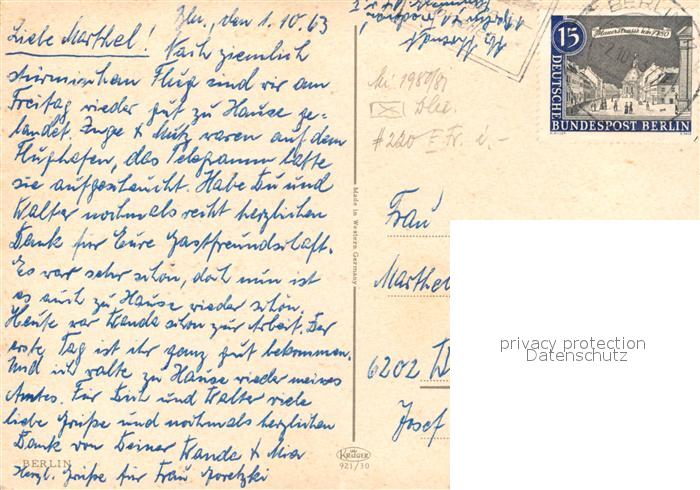 Bln., den 1.10.63
Liebe Marthel! Nach ziemlich
stürmischem Flug sind wir am
Freitag wieder gut zu Hause ge-
landet. Inge & Mutz waren auf dem
Flughafen, das Telegramm hatte
sie aufgescheucht. Habe Du und
Walter nochmals recht herzlichen
Dank für Eure Gastfreundschaft.
Es war sehr schön, doch nun ist
es auch zu Hause wieder schön.
Heute war Wanda schon zur Arbeit. Der
erste Tag ist ihr ganz gut bekommen.
Und ich walte zu Hause wieder meines
Amtes. Für Dich und Walter viele
liebe Grüße und nochmals herzlichen
Dank von Deiner Wanda & Mia
Herzl. Grüße für Frau Goretzki
BERLIN
Made in Western Germany
KRÜGER
921/30
BERLIN
15
DEUTSCHE
BUNDESPOST BERLIN
#220
Frau
Marthel
6202
Josef
privacy protection
Datenschutz